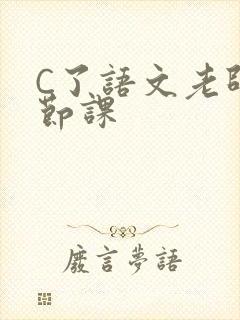 C了語文老師
節課
廢言夢語